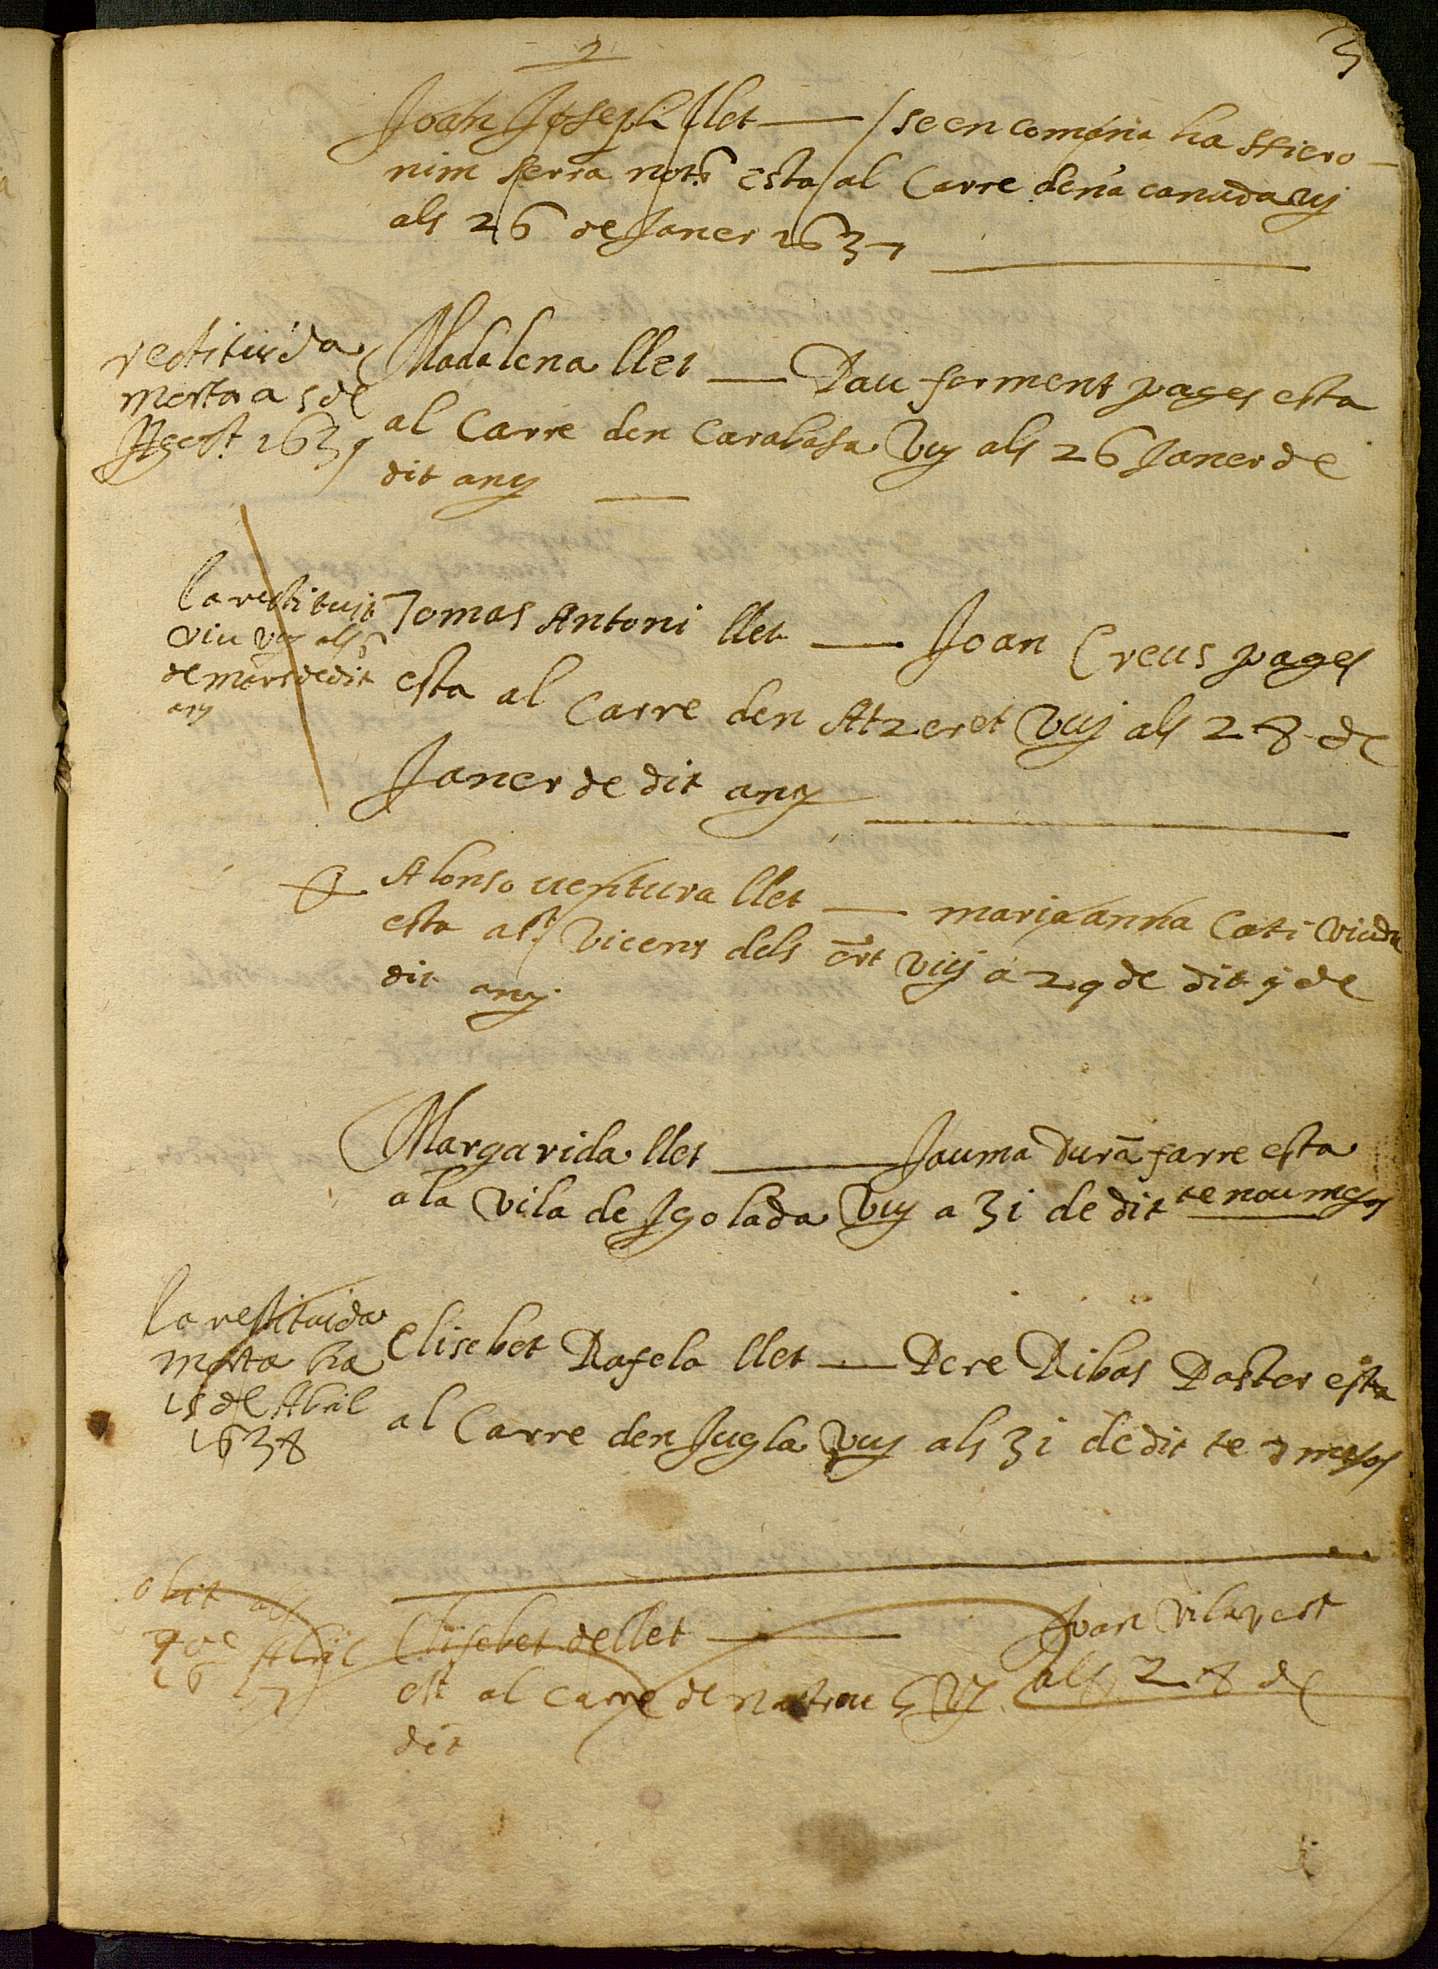 3
Joan Joseph llet — se en comana ha Hiero-
nim serra not esta al Carre dena canuda vuj
als 26 de Janer 1637
restituida
morta a 5 de
Agost 1637
Madalena llet — Pau forment pages esta
al Carre den Carabasa Vuy als 26 Janer de
dit any
la restituit
viu vuy als
de mars de dit
any
Tomas Antoni llet — Joan Creus pages
esta al Carre den Atzeret Vuj als 28 de
Janer de dit any
Alonso uentura llet — maria anna Cati Viuda
esta a St Vicens dels ort vuj a 29 de dit y de
dit any
Margarida llet — Jauma Durā farre esta
a la Vila de Igolada Vuy a 31 de dit te nou mesos
la restituida
morta ha
15 de Abril
1638
Elisebet Rafela llet — Pere Ribas Paster esta
al Carre den Jugla vuy als 31 de dit te 7 mesos
obit als
9 de Abril
1637
Elisebet de llet — Joan Vila
est al carre de vuy als 28 de
dit